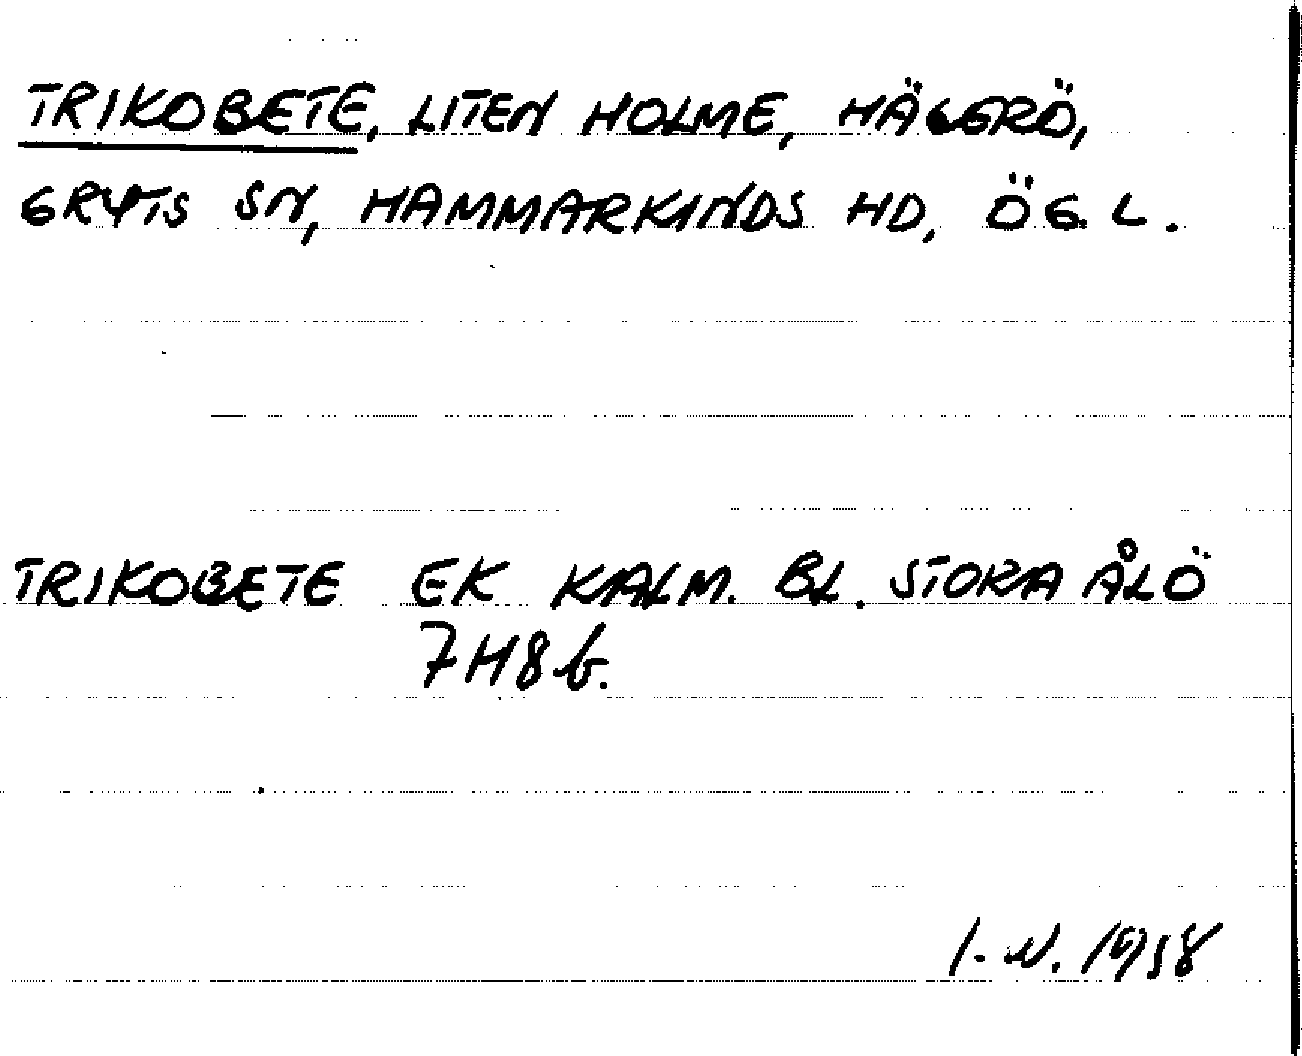 TRIKOBETE, LITEN HOLME, HÄGERÖ,
GRYTS SN, HAMMARKINDS HD, ÖG. L.
TRIKOBETE EK KALM. BL. STORA ÅLÖ
7H8b.
1958